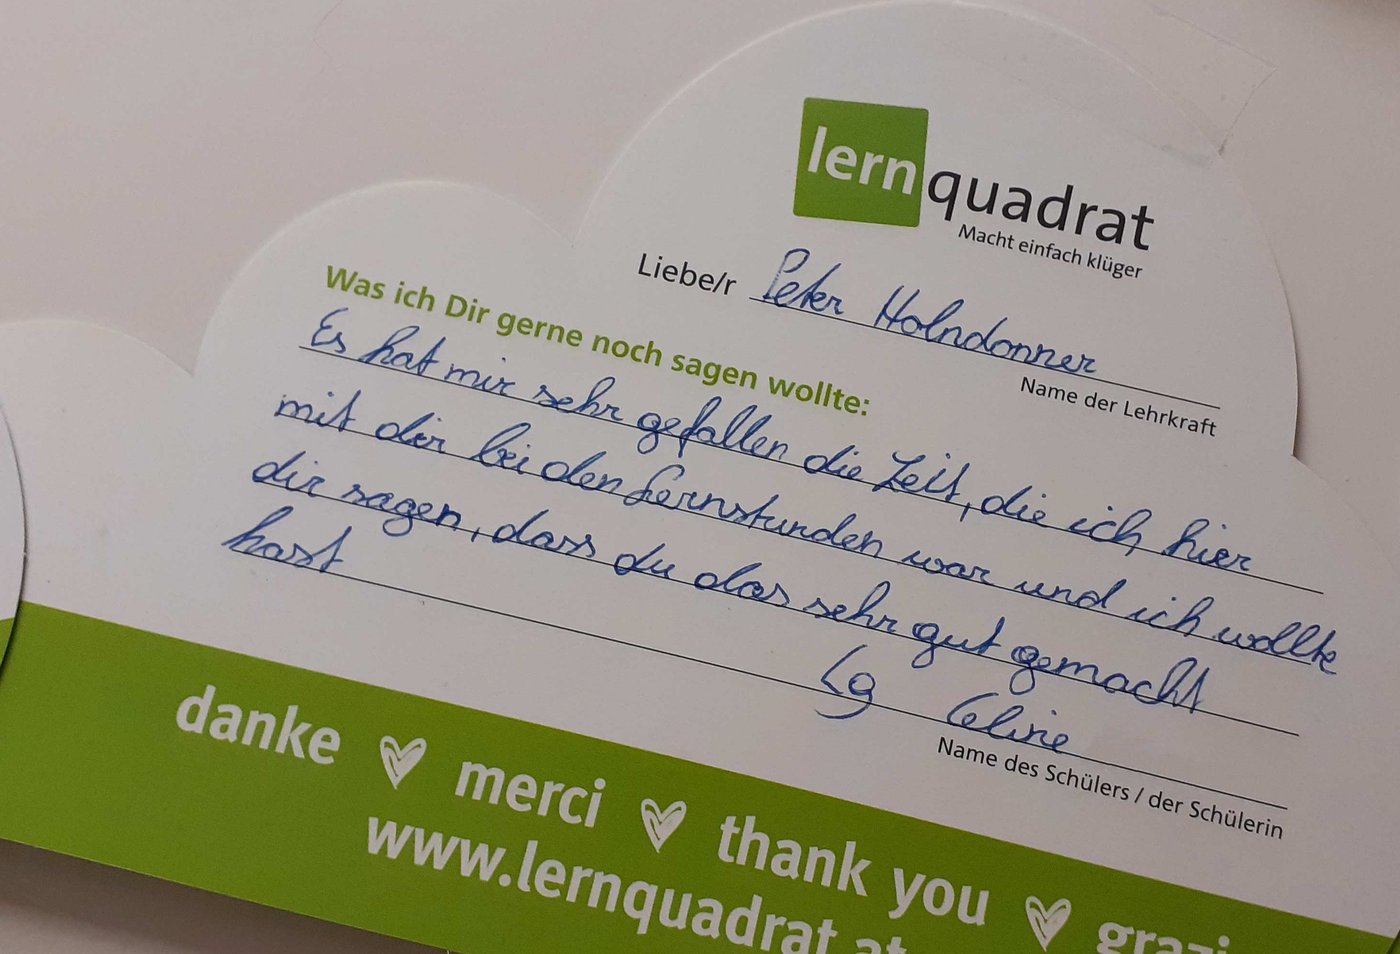 lernquadrat
Macht einfach klüger
Liebe/r Peter Holndonner
Name der Lehrkraft
Was ich Dir gerne noch sagen wollte:
Es hat mir sehr gefallen die Zeit, die ich hier
mit dir bei den Lernstunden war und ich wollte
dir sagen, dass du das sehr gut gemacht
hast
Lg Celine
Name des Schülers / der Schülerin
danke merci thank you grazi
www.lernquadrat.at